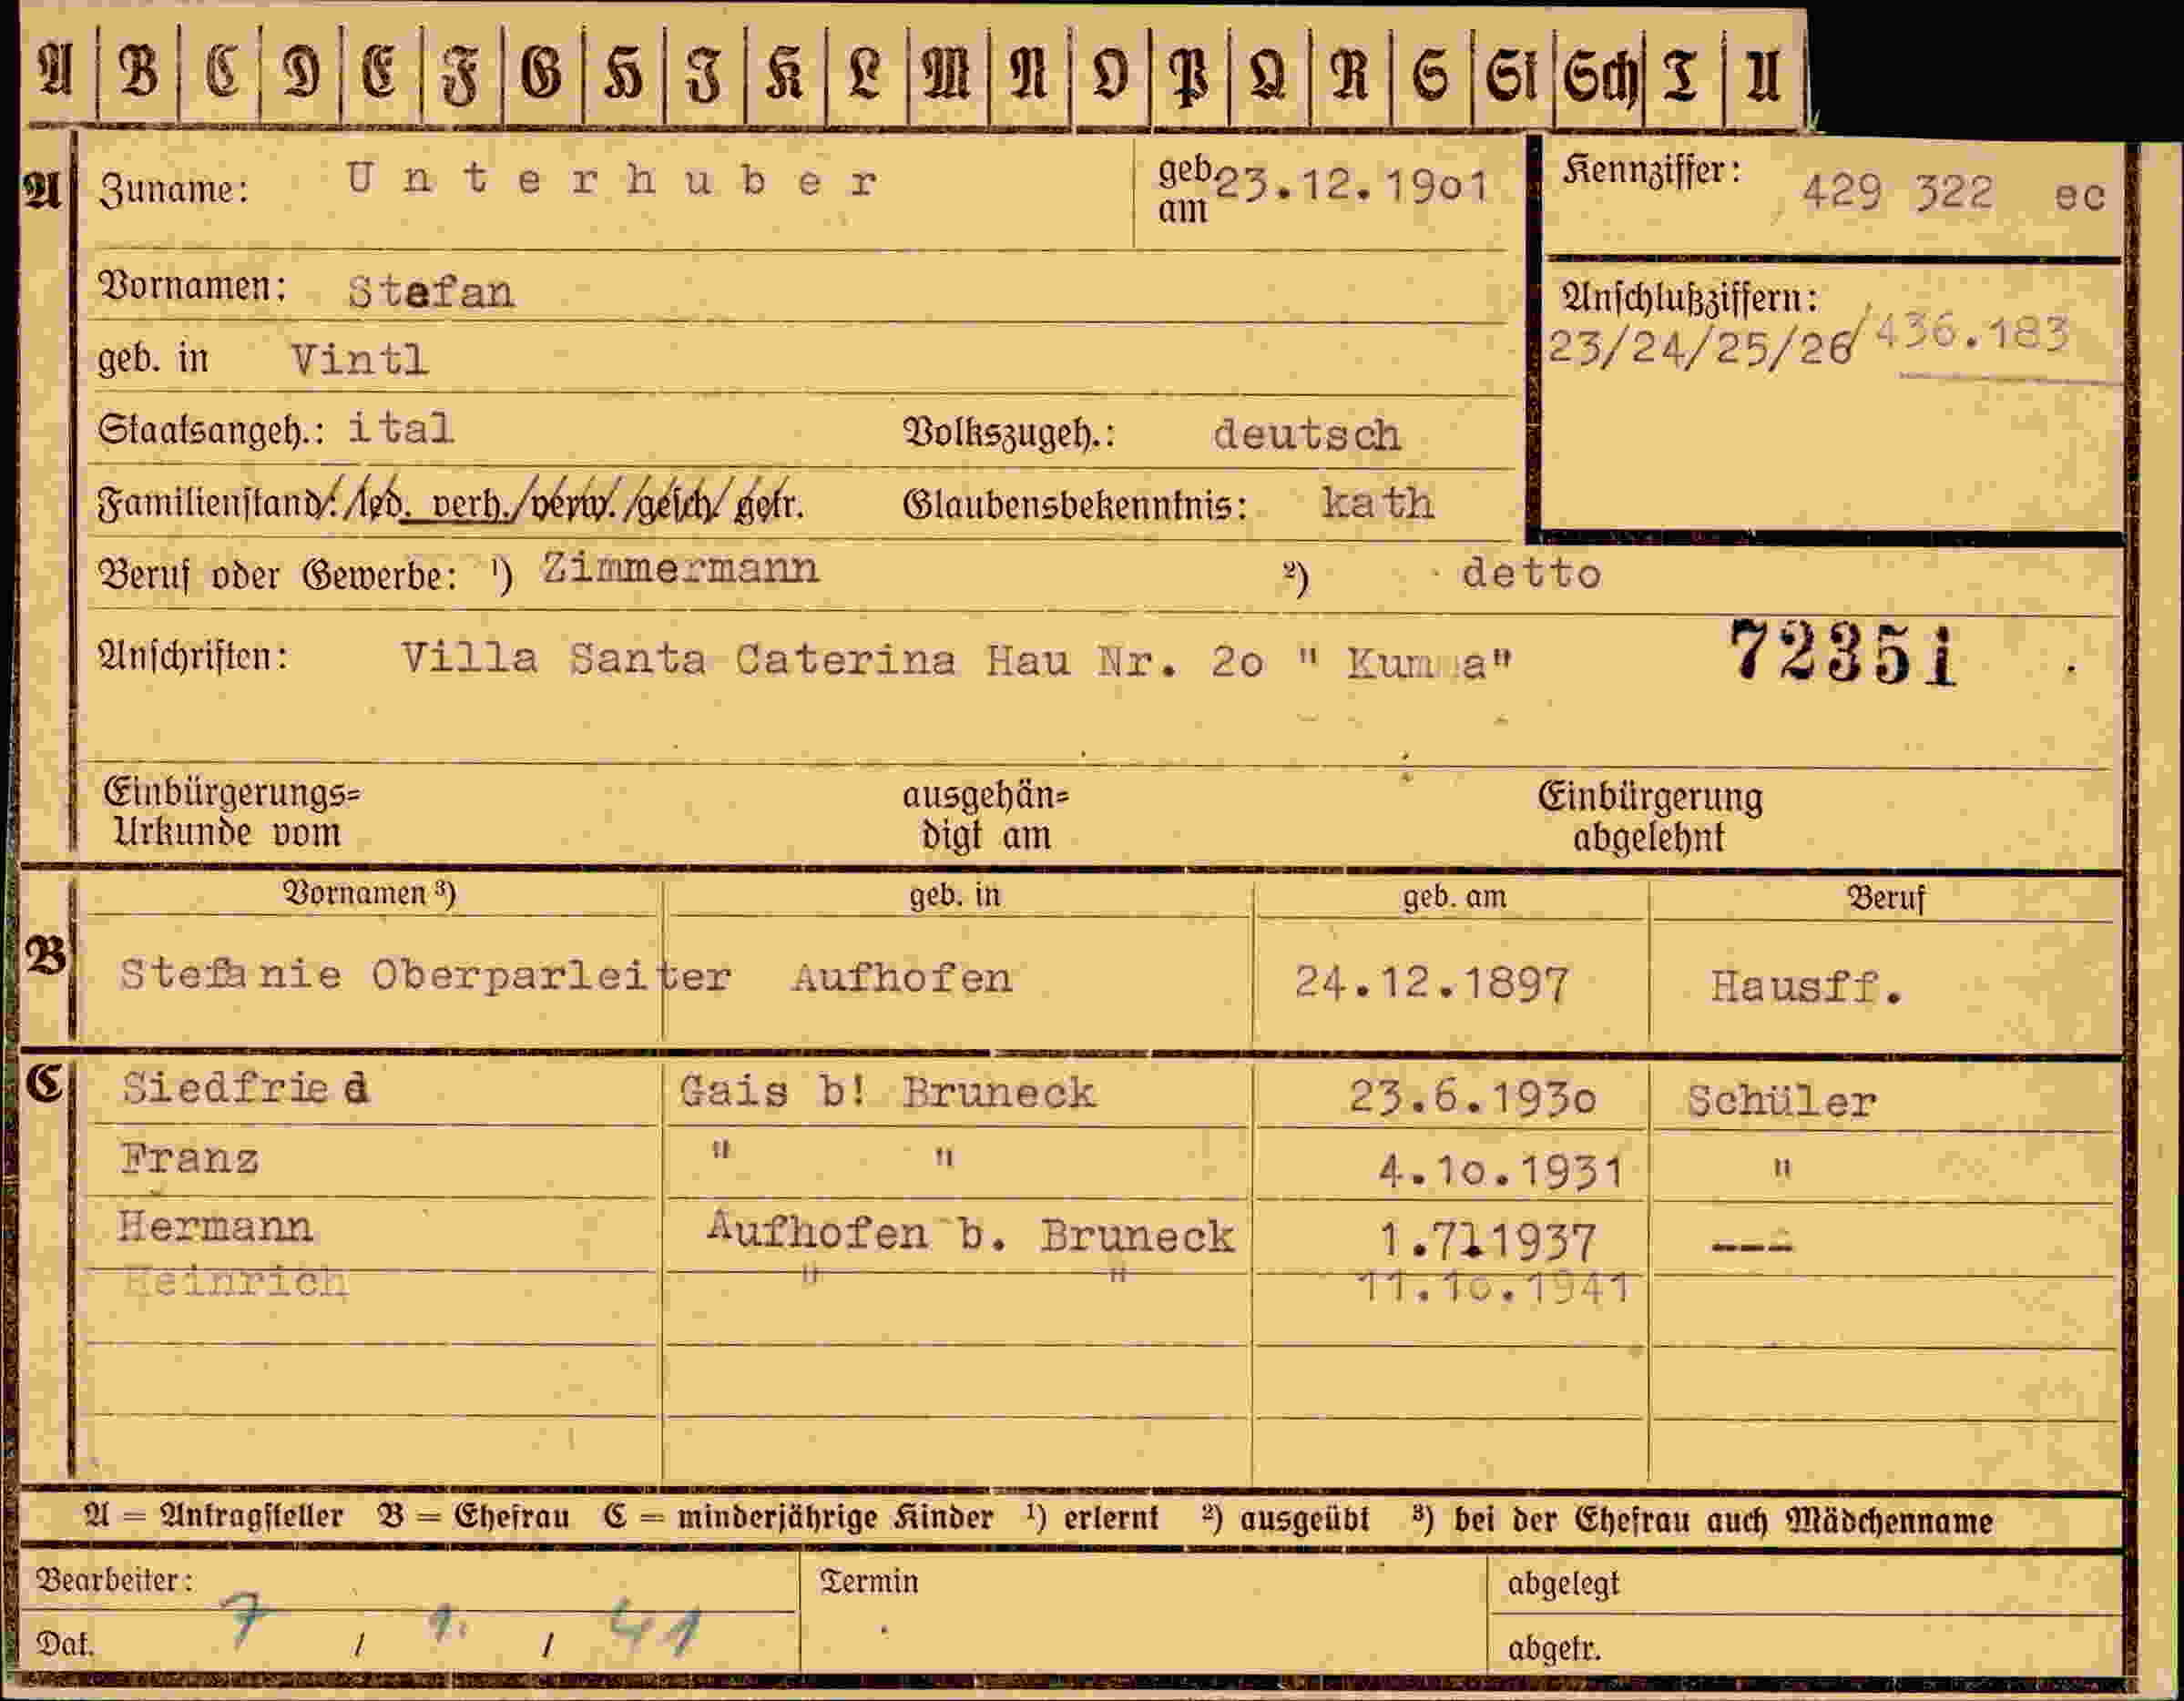 A B C D E F G H J K L M N O P Q R S St Sch T U
A Zuname: Unterhuber geb. am 23.12.1901 Kennziffer: 429 322 ec
Vornamen: Stefan
Anschlußziffern:
23/24/25/26/436.183
geb. in Vintl
Staatsangeh.: ital Volkszugeh.: deutsch
Familienstand: led. verh./verw./gesch/ getr. Glaubensbekenntnis: kath
Beruf oder Gewerbe: ¹) Zimmermann ²) detto
Anschriften: Villa Santa Caterina Hau Nr. 20 " " 72351
Einbürgerungs= ausgehän= Einbürgerung
Urkunde vom digt am abgelehnt
Vornamen ³) geb. in geb. am Beruf
B Stefanie Oberparleiter Aufhofen 24.12.1897 Hausff.
C Siedfried Gais b! Bruneck 23.6.1930 Schüler
Franz " " 4.10.1931 "
Hermann Aufhofen b. Bruneck 1.711937 ---
Heinrich " " 11.10.1941
A = Antragsteller B = Ehefrau C = minderjährige Kinder ¹) erlernt ²) ausgeübt ³) bei der Ehefrau auch Mädchenname
Bearbeiter: Termin abgelegt
Dat. 7 / 1. / 41 abgetr.